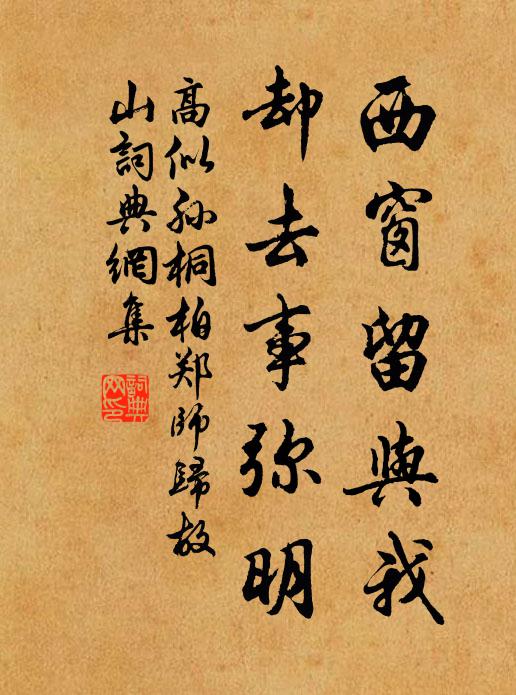 西窗留與我
却去事弥明
高似孙桐柏郑師歸故
山詞典網集
詞典网印